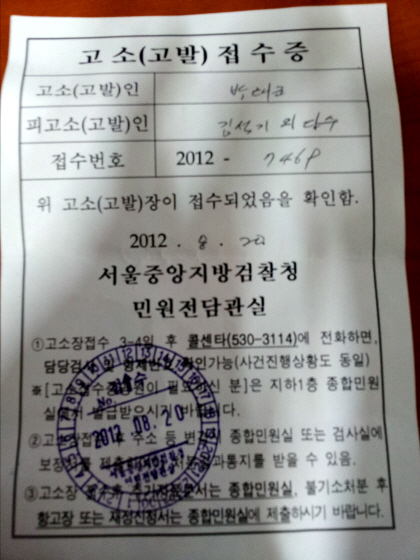 고 소 (고발) 접 수 증
고소(고발)인
피고소(고발)인 김석기 외 다수
접수번호 2012 -
위 고소(고발)장이 접수되었음을 확인함.
2012 . 8 . 20
서울중앙지방검찰청
민원전담관실
①고소장접수 3-4일 후 콜센타(530-3114)에 전화하면,
담당검 확인가능(사건진행상황도 동일)
※[고소 필요하신 분]은 지하1층 종합민원
실 발급받으시기 바랍니다.
2012 08. 20
②고소장 주소 등 종합민원실 또는 검사실에
통지를 받을 수 있음.
③고소장 종합민원실, 불기소처분 후
항고장 또는 재정신청서는 종합민원실에 제출하시기 바랍니다.